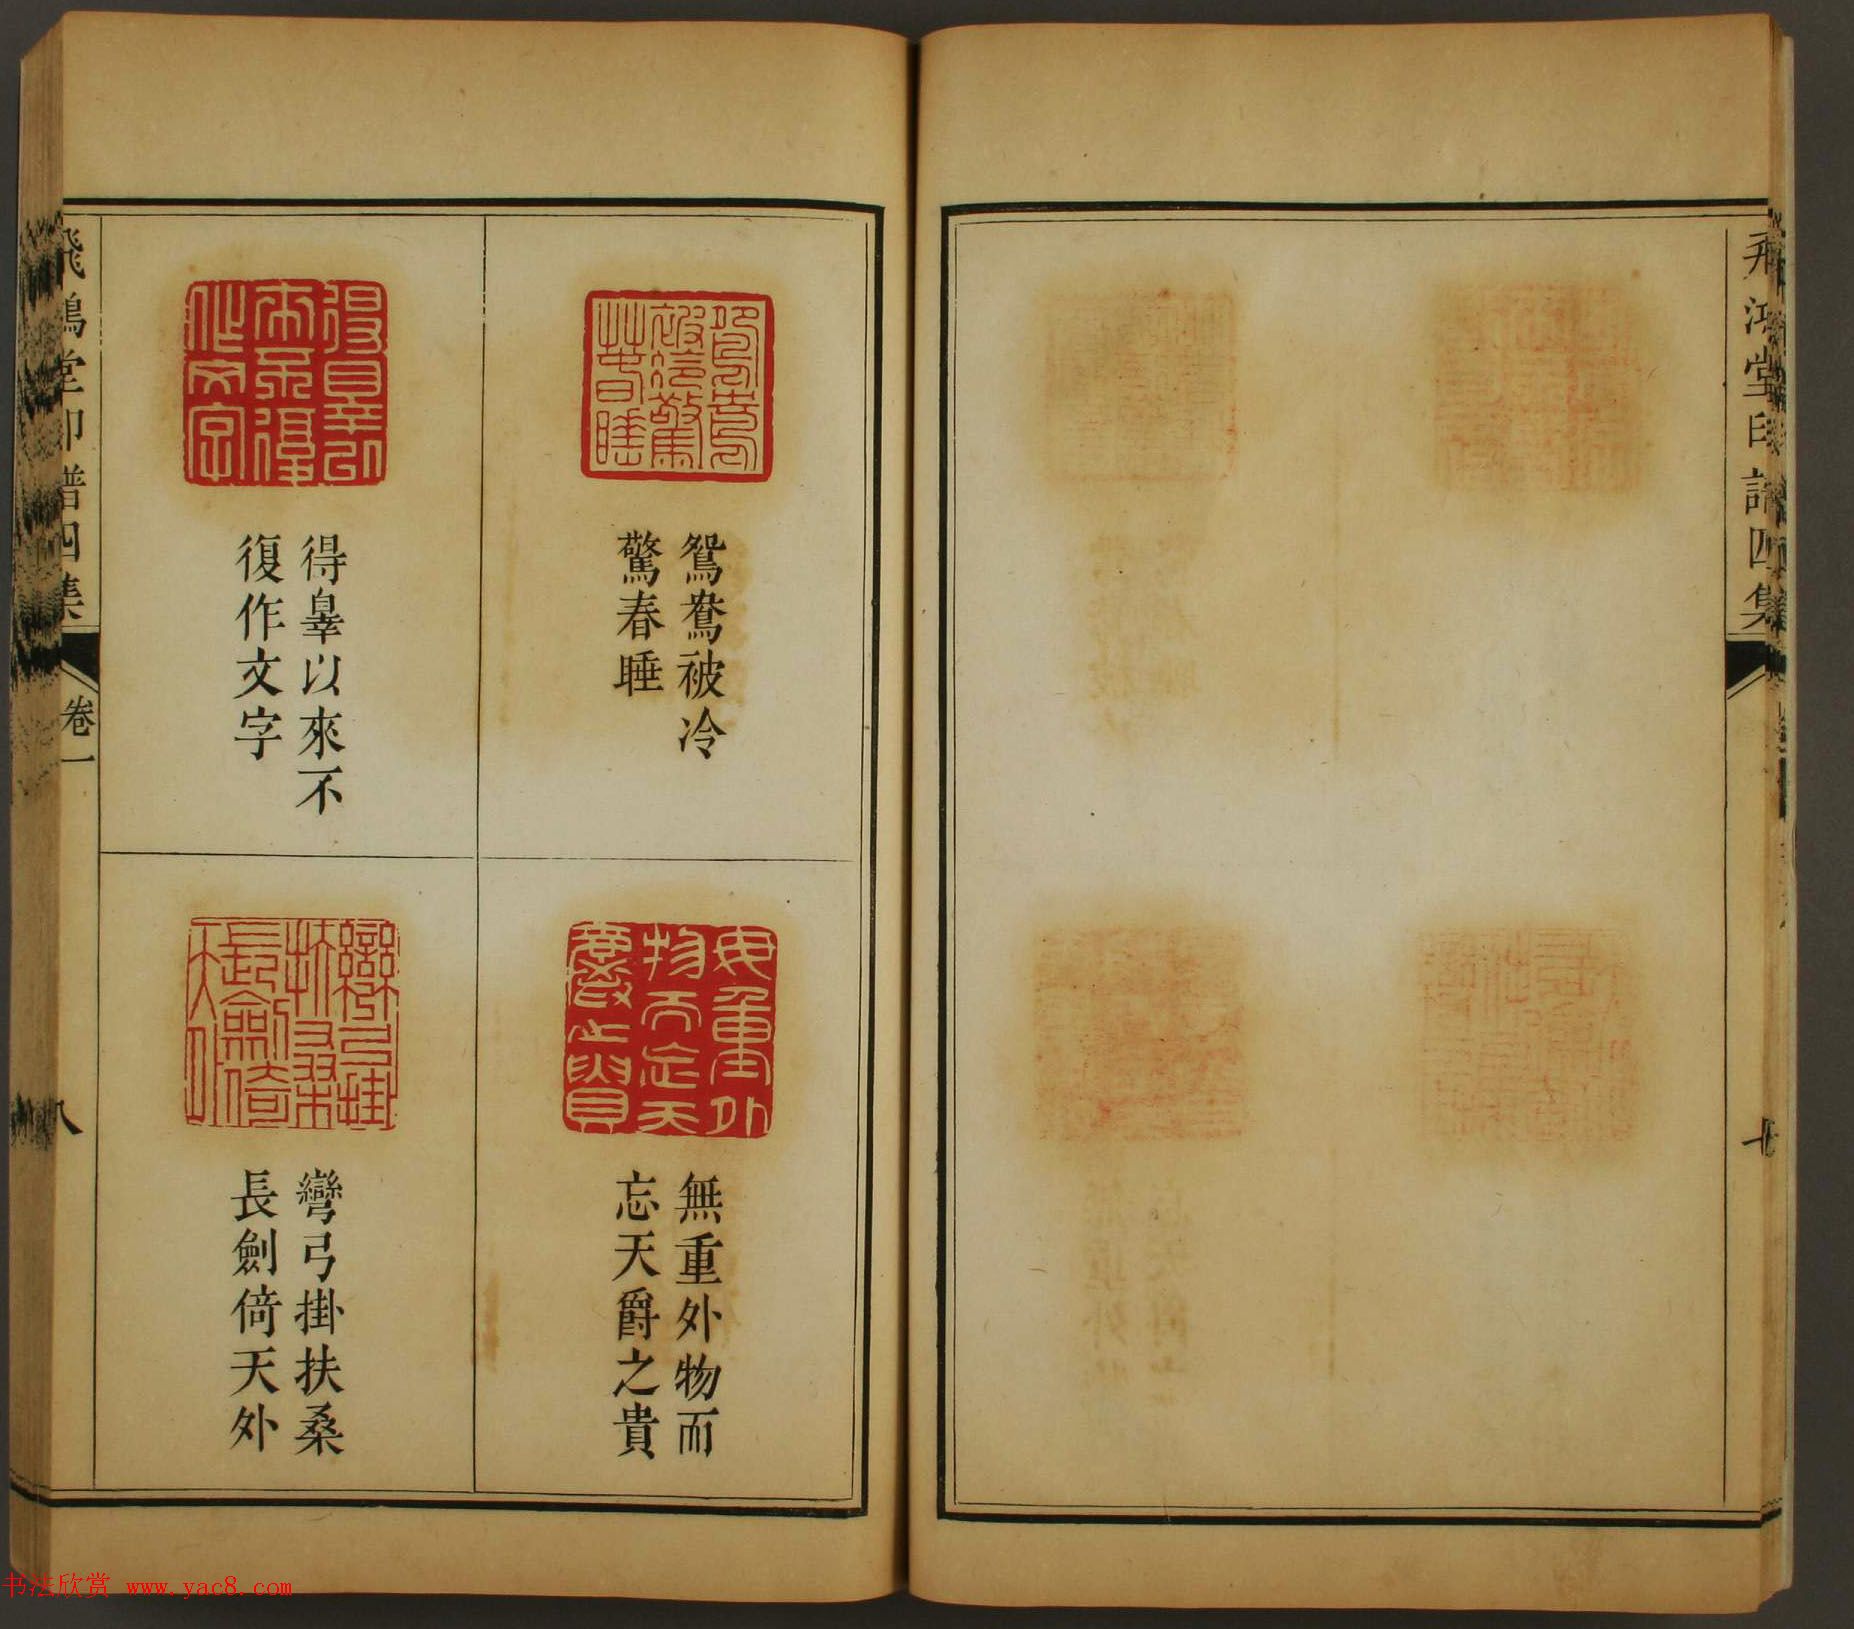 飛鴻堂印譜四集
七
鴛鴦被冷
驚春睡
無重外物而
忘天爵之貴
得辠以來不
復作文字
彎弓掛扶桑
長劍倚天外
飛鴻堂印譜四集
卷一
八
书法欣赏 www.yac8.com